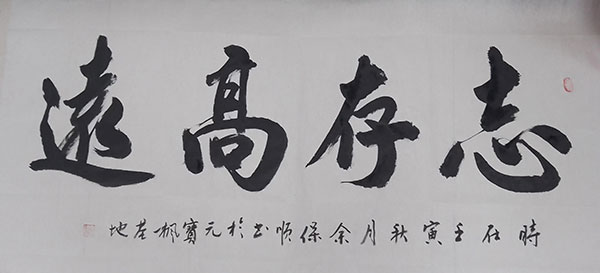 志存高遠
時在壬寅秋月余保順書於元寶楓茗地